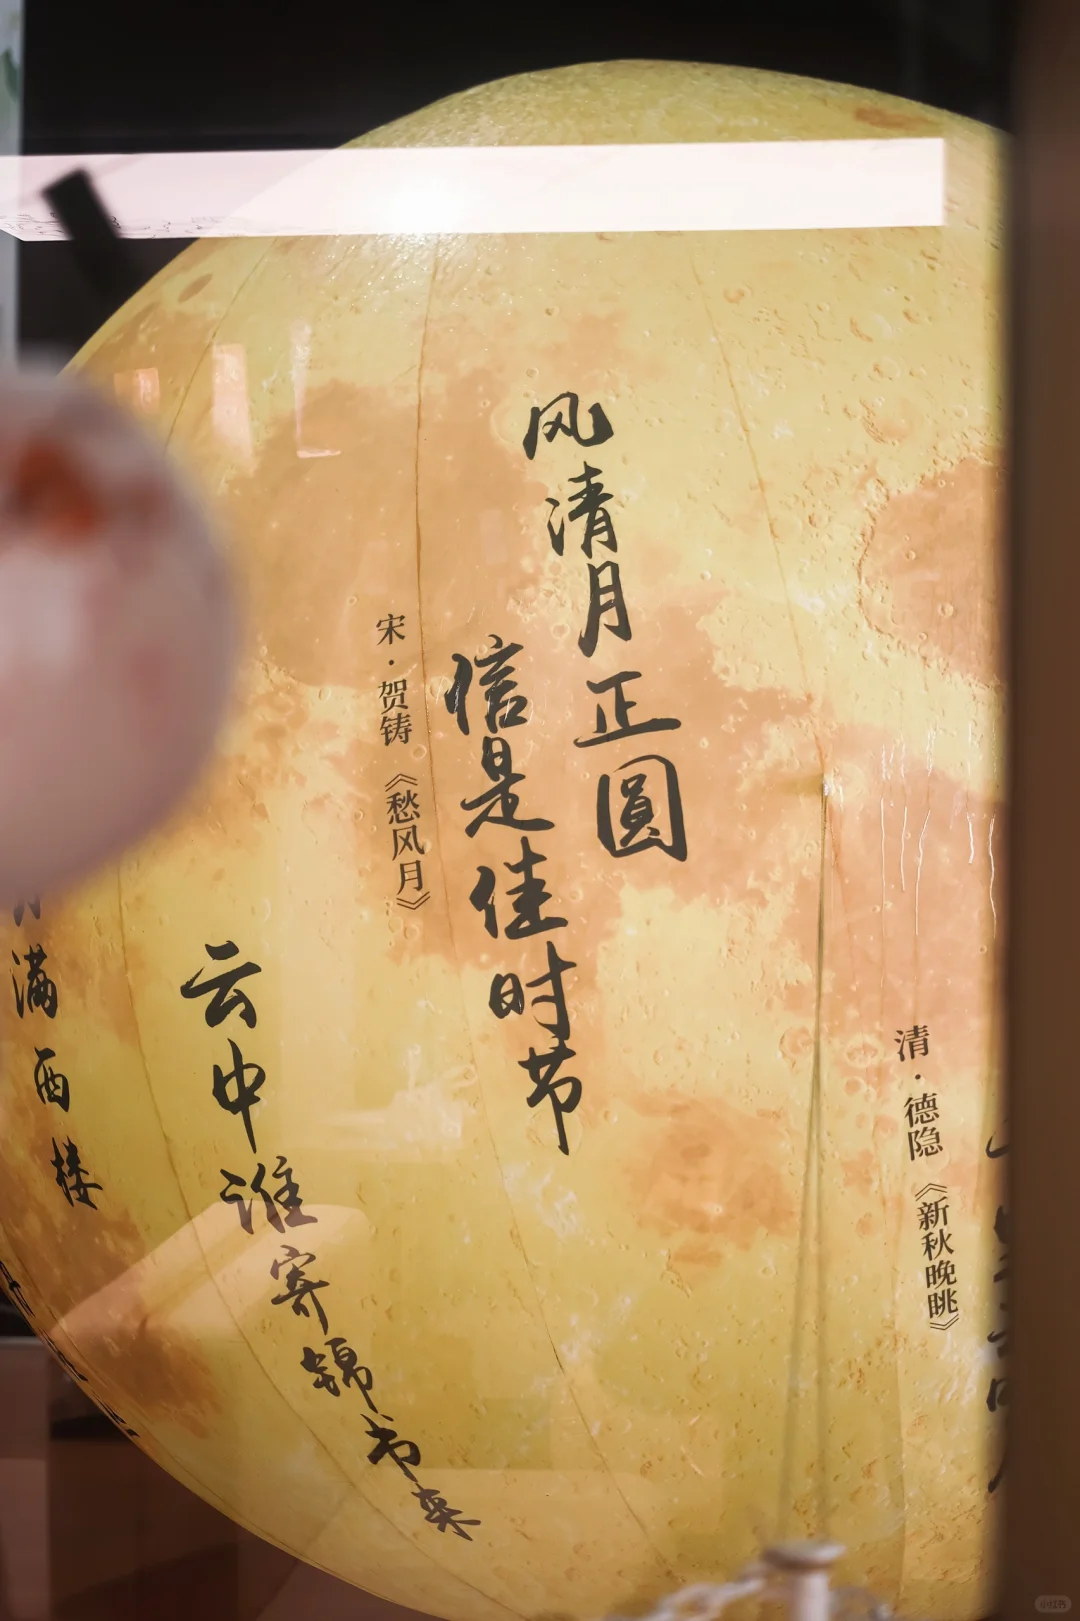 清·德隐《新秋晚眺》
风清月正圓
信是佳时节
宋·贺铸《愁风月》
云中谁寄锦书来
满西楼
小红书